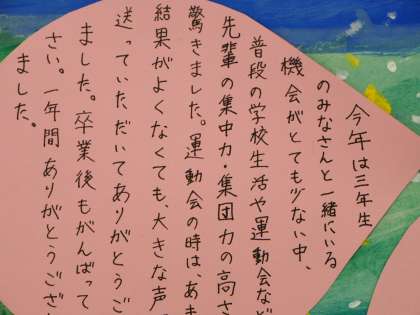 今年は三年生
のみなさんと一緒にいる
機会がとても少ない中、
普段の学校生活や運動会など
先輩の集中力・集団力の高さ
驚きました。運動会の時は、あま
結果がよくなくても、大きな声
送っていただいてありがとうご
ました。卒業後もがんばって
さい。一年間ありがとうござ
ました。